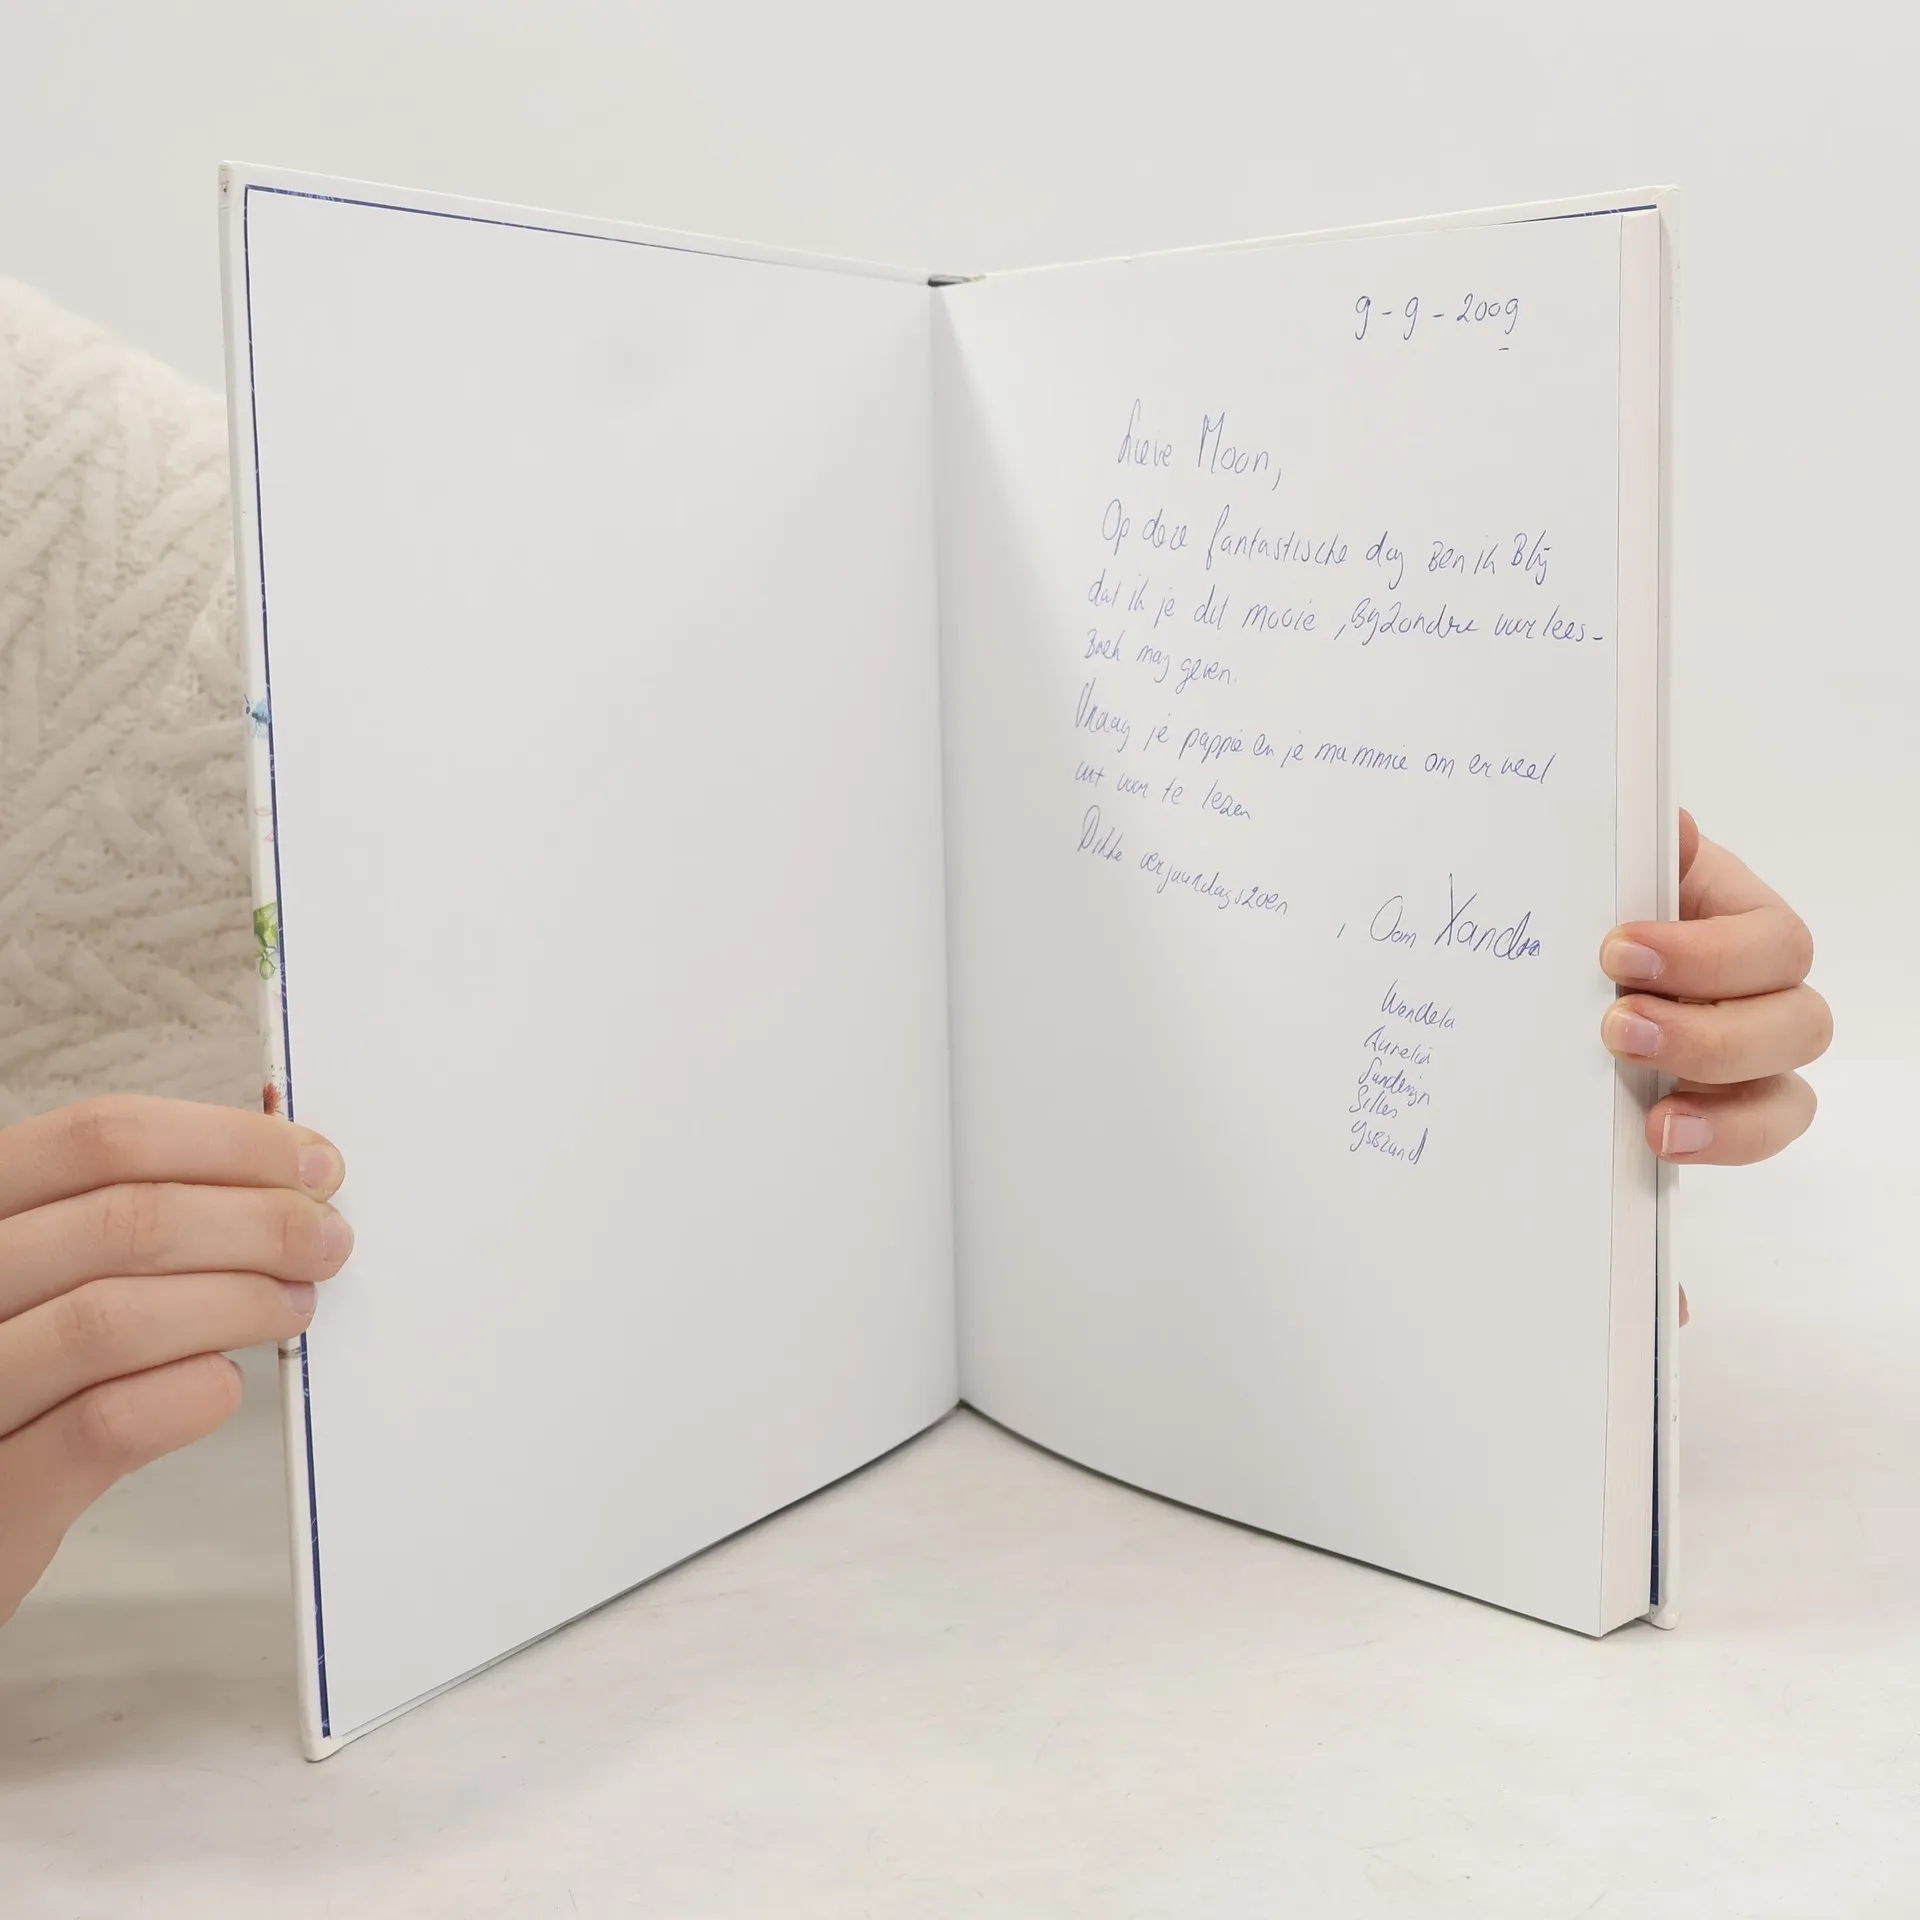 9-9-2009
Lieve Moon,
Op deze fantastische dag Ben ik Blij
dat ik je dit mooie, Byzondre voorlees-
Boek mag geven.
Vraag je pappie en je mammie om er veel
uit voor te lezen
Dikke verjaardagszoen
, Oom Xandra
Wendela
Aurelia
Sanderijn
Silles
YsBzand